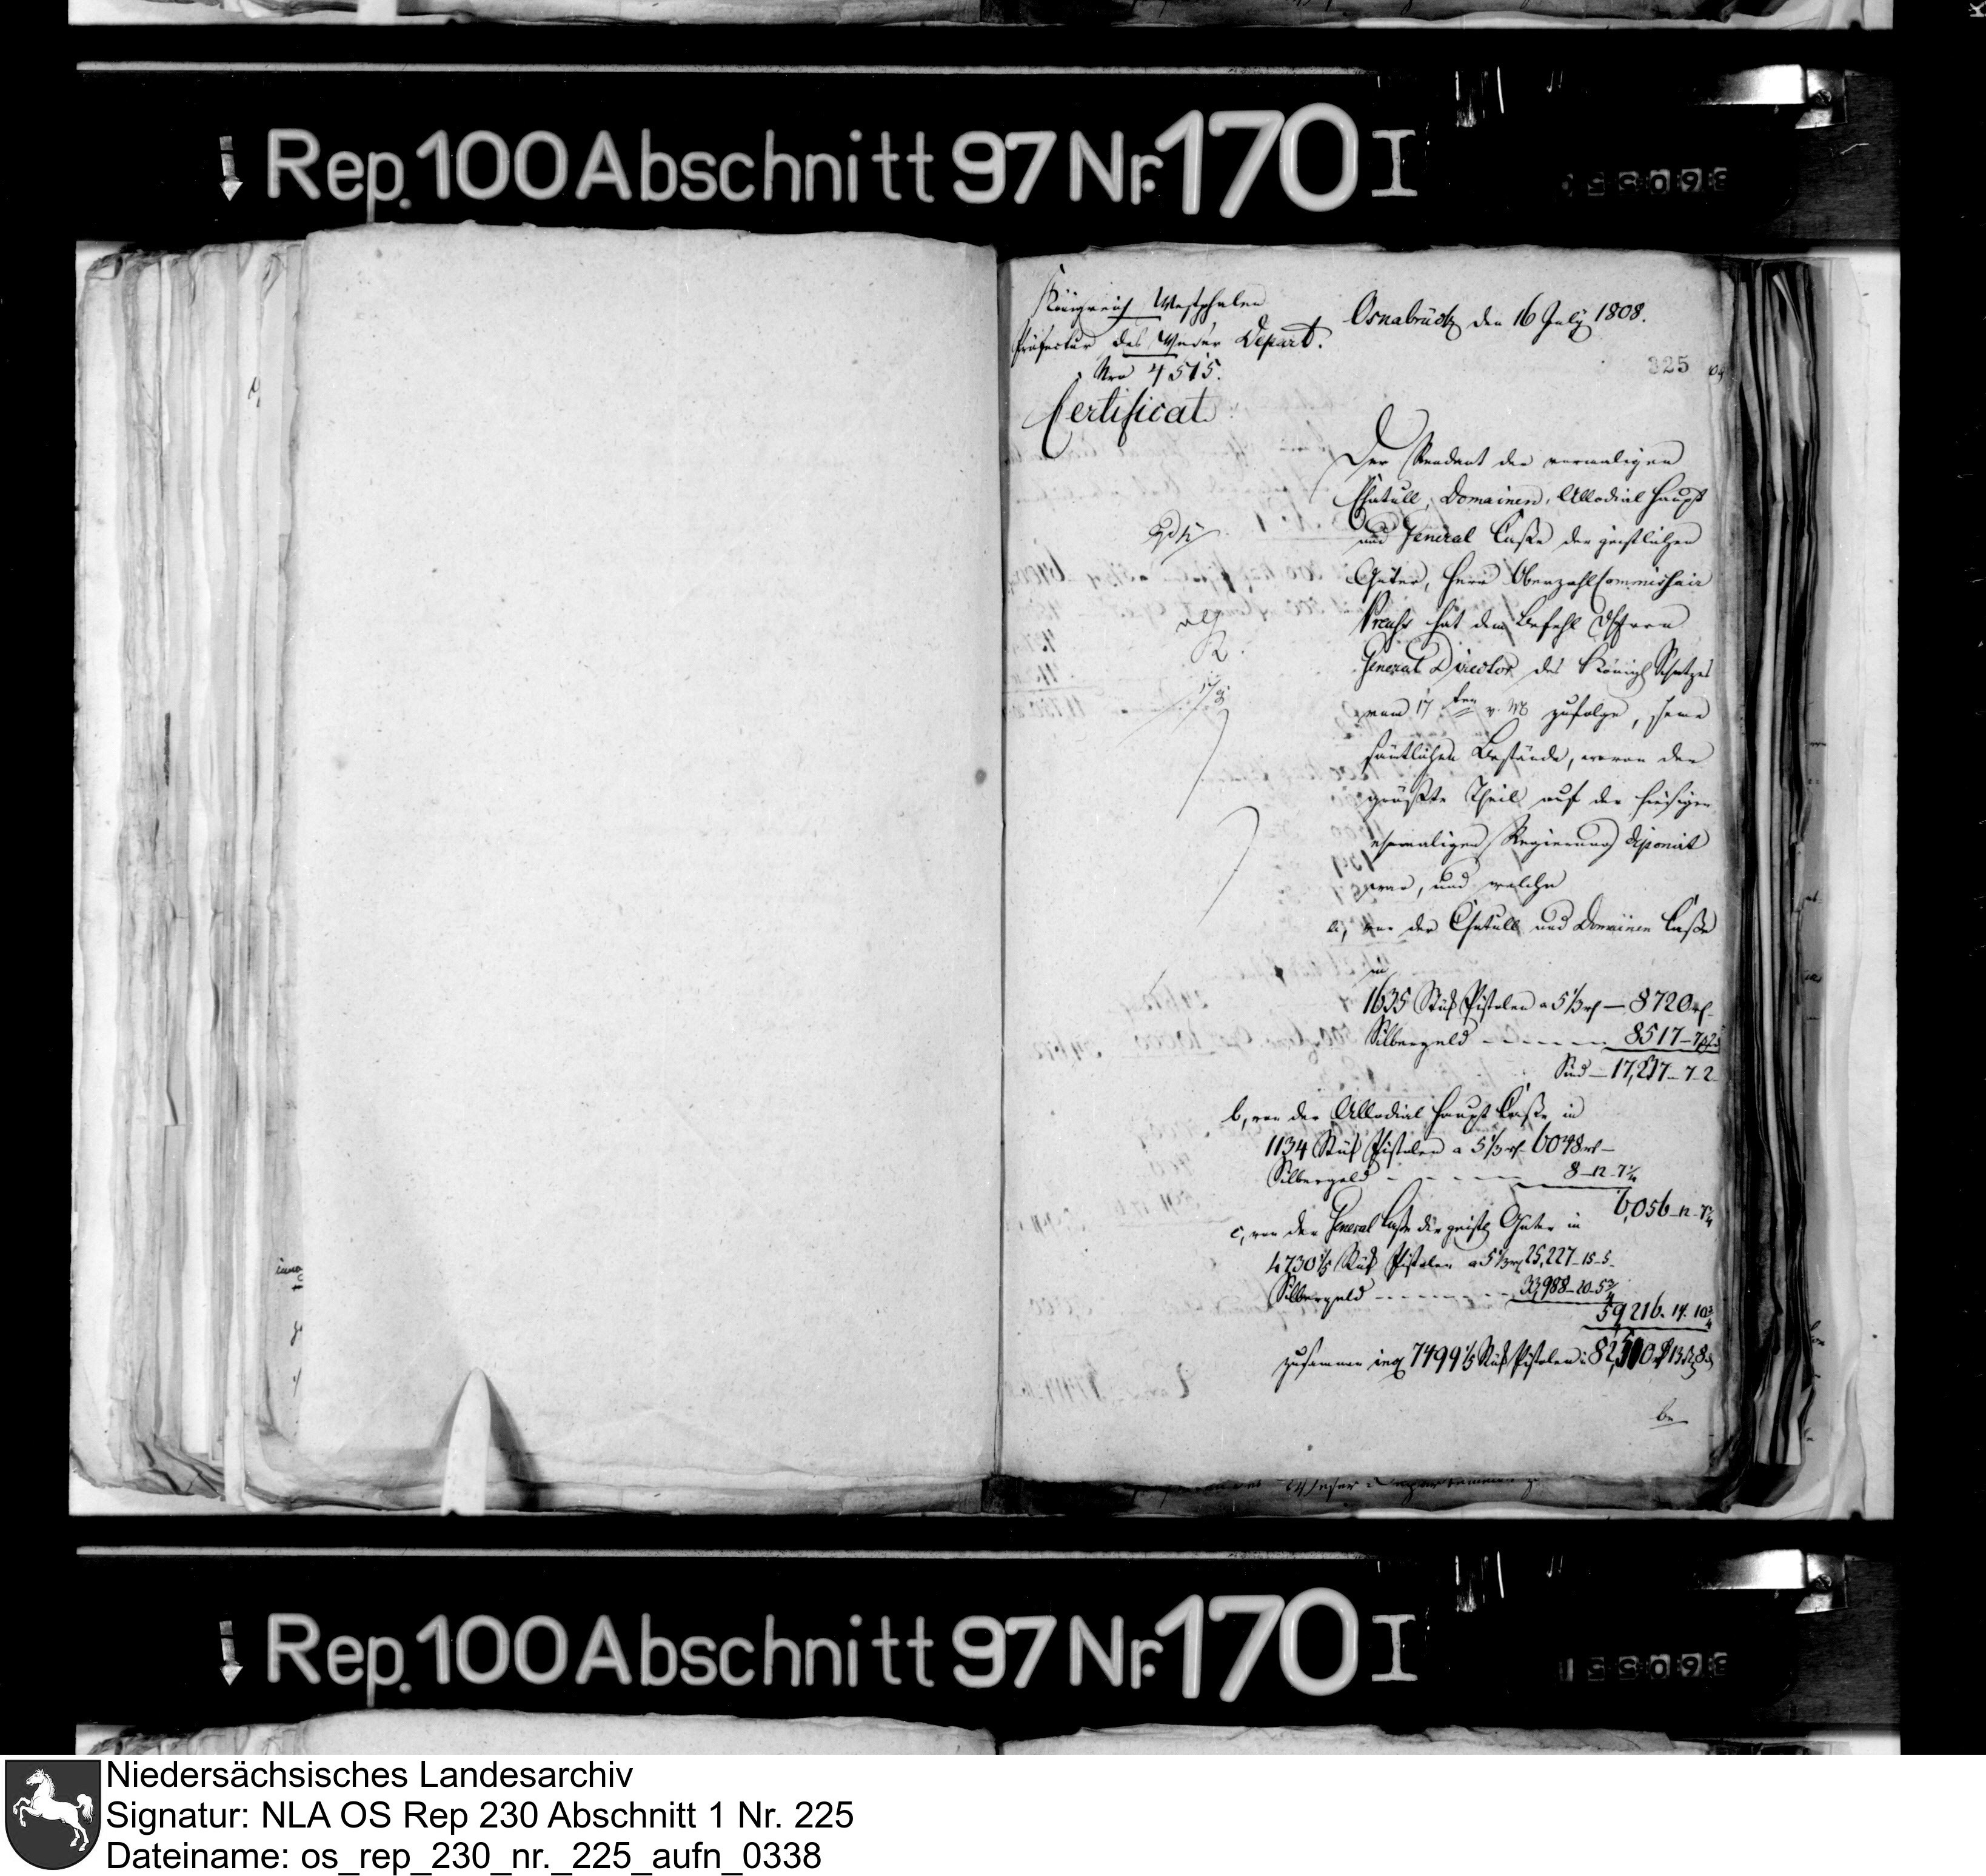 Rep. 100 Abschnitt 97 Nr. 170 I
Königreich Westphalen
Präfectur des Weser Depart.
Nro 4515.
Certificat
Osnabrück den 16 July 1808.
325
Der Rendant der vormaligen
Chatull, Domainen, Allodial Haupt
und General Casse der geistlichen
Güter, Herr Oberzahl Commissair
Preuss hat dem Befehl
General Director des Königl Schatzes
vom 17 ten v. M zufolge, seine
sämtlichen Bestände, wovon der
größte Theil auf der hiesigen
ehemaligen Regierung deponirt
war, und welche
a, von der Chatull und Domainen Casse
in
1635 Stük Pistolen a 5 1/3 rh — 8720 rh
Silbergeld - - - - 8517 - 7
Sind — 17,237 - 7 - 2
b, von der Allodial Haupt Casse in
1134 Stük Pistolen a 5 1/3 rh 6048 rh —
Silbergeld - - - - 8 - 12 - 7 1/4
6,056 - 12 - 7 1/4
c, von der General Casse der geistl Güter in
4730 1/5 Stük Pistolen a 5 1/3 rh 25,227 - 15 - 5
Silbergeld - - - - 33,988 - 20 - 5 3/4
59,216 - 17 - 10 3/4
zusammen incl 7499 1/5 Stük Pistolen 82,510 rh 13
be
Rep. 100 Abschnitt 97 Nr. 170 I
Niedersächsisches Landesarchiv
Signatur: NLA OS Rep 230 Abschnitt 1 Nr. 225
Dateiname: os_rep_230_nr._225_aufn_0338